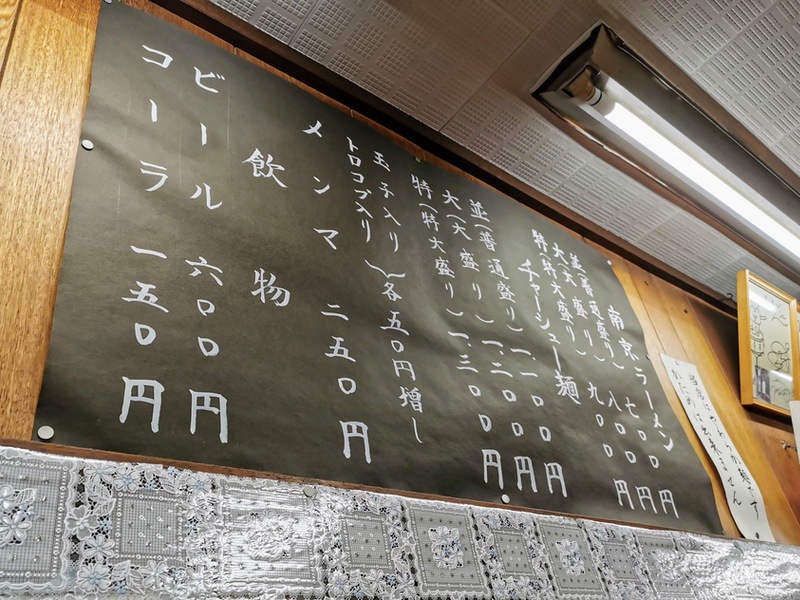 南京ラーメン
並(普通盛り) 七〇〇円
大(大盛り) 八〇〇円
特(特大盛り) 九〇〇円
チャーシュー麺
並(普通盛り) 一.一〇〇円
大(大盛り) 一.二〇〇円
特(特大盛り) 一.三〇〇円
玉子入り
トロコブ入り
各五〇円増し
メンマ 二五〇円
飲物
ビール 六〇〇円
コーラ 一五〇円